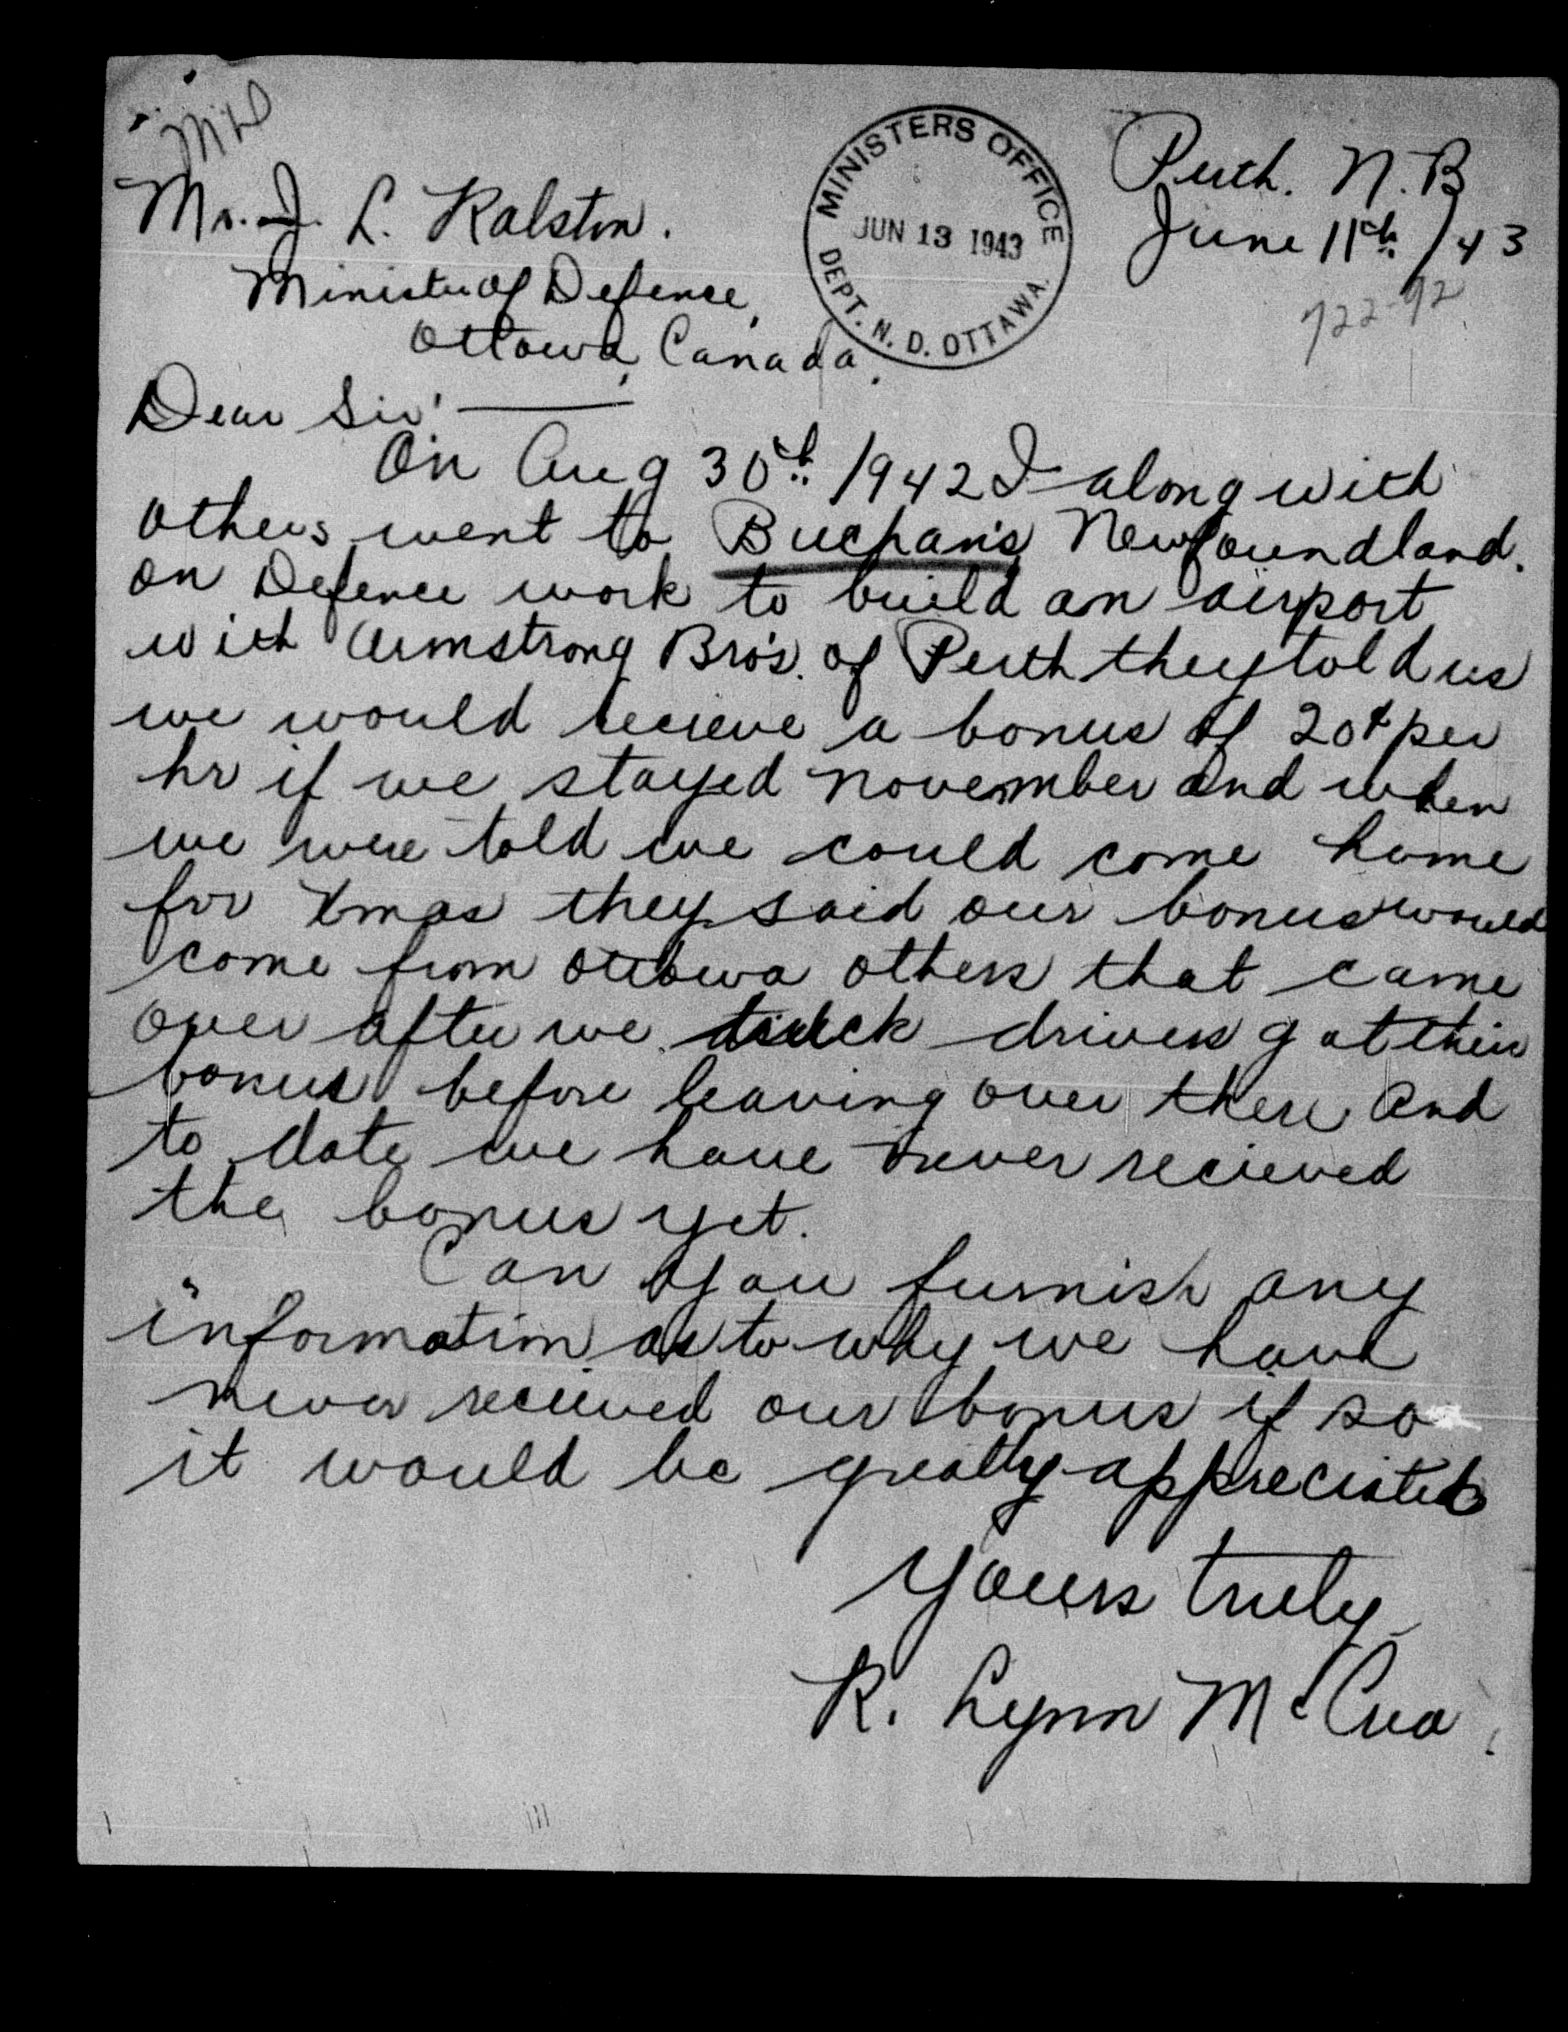 Perth. N. B
June 11th /43
722-92
MINISTERS OFFICE
JUN 13 1943
DEPT. N. D. OTTAWA.
Mr. J. L. Ralston.
Minister of Defence,
Ottawa, Canada.
Dear Sir:
On Aug 30th 1942 I along with
others went to Buchan's Newfoundland.
on Defence work to build an airport
with Armstrong Bro's. of Perth they told us
we would recieve a bonus of 20¢ per
hr if we stayed November and when
we were told we could come home
for Xmas they said our bonus would
come from Ottowa others that came
over after we truck drivers got their
bonus before leaving over there and
to date we have never recieved
the bonus yet.
Can you furnish any
information as to why we have
never recieved our bonus if so
it would be greatly appreciated
Yours truly
R. Lynn McCrea.